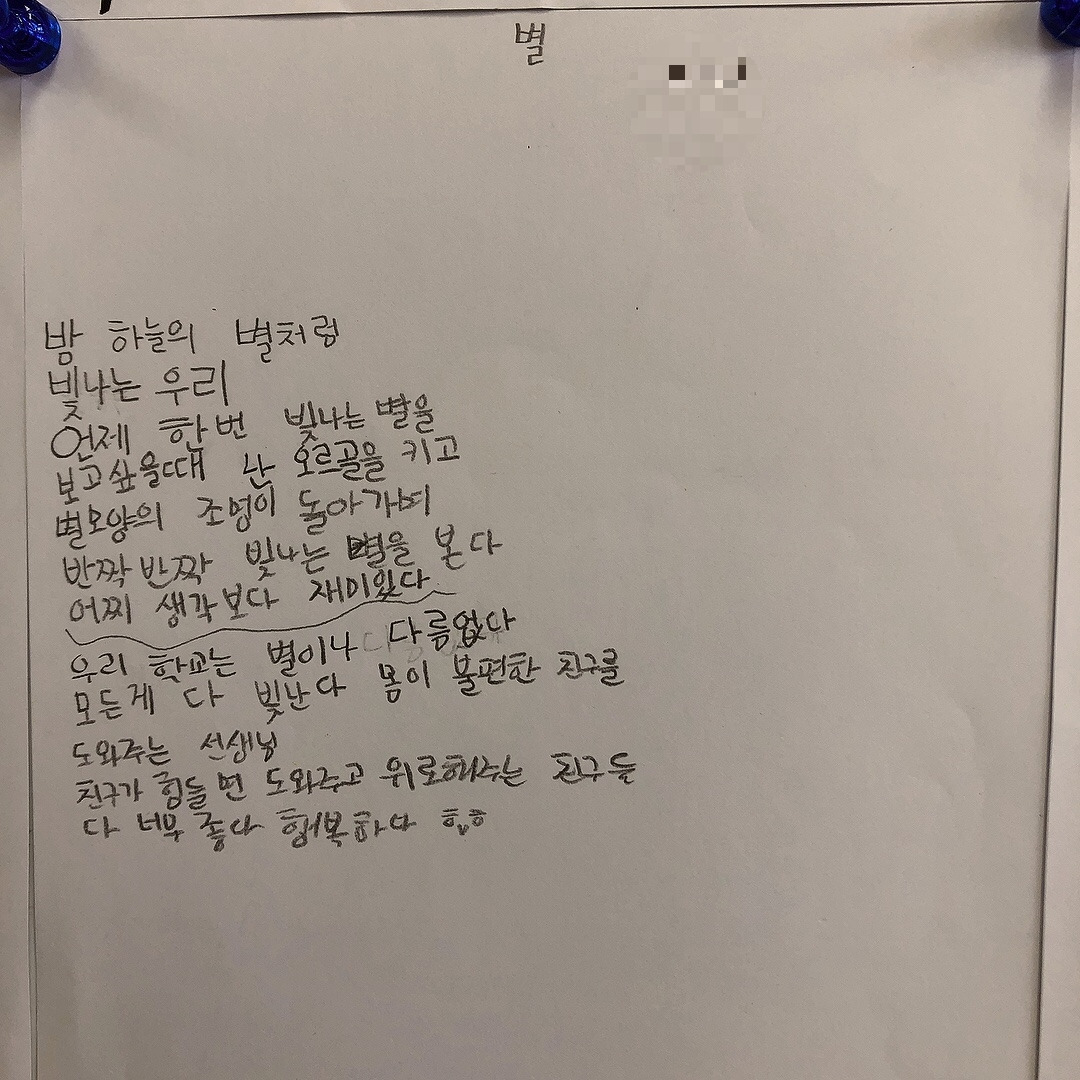 별
밤 하늘의 별처럼
빛나는 우리
언제 한번 빛나는 별을
보고싶을때 난 오르골을 키고
별모양의 조명이 돌아가며
반짝반짝 빛나는 별을 본다
어찌 생각보다 재미있다
우리 학교는 별이나 다름없다
모든게 다 빛난다 몸이 불편한 친구를
도와주는 선생님
친구가 힘들면 도와주고 위로해주는 친구들
다 너무 좋다 행복하다 ㅎㅅㅎ